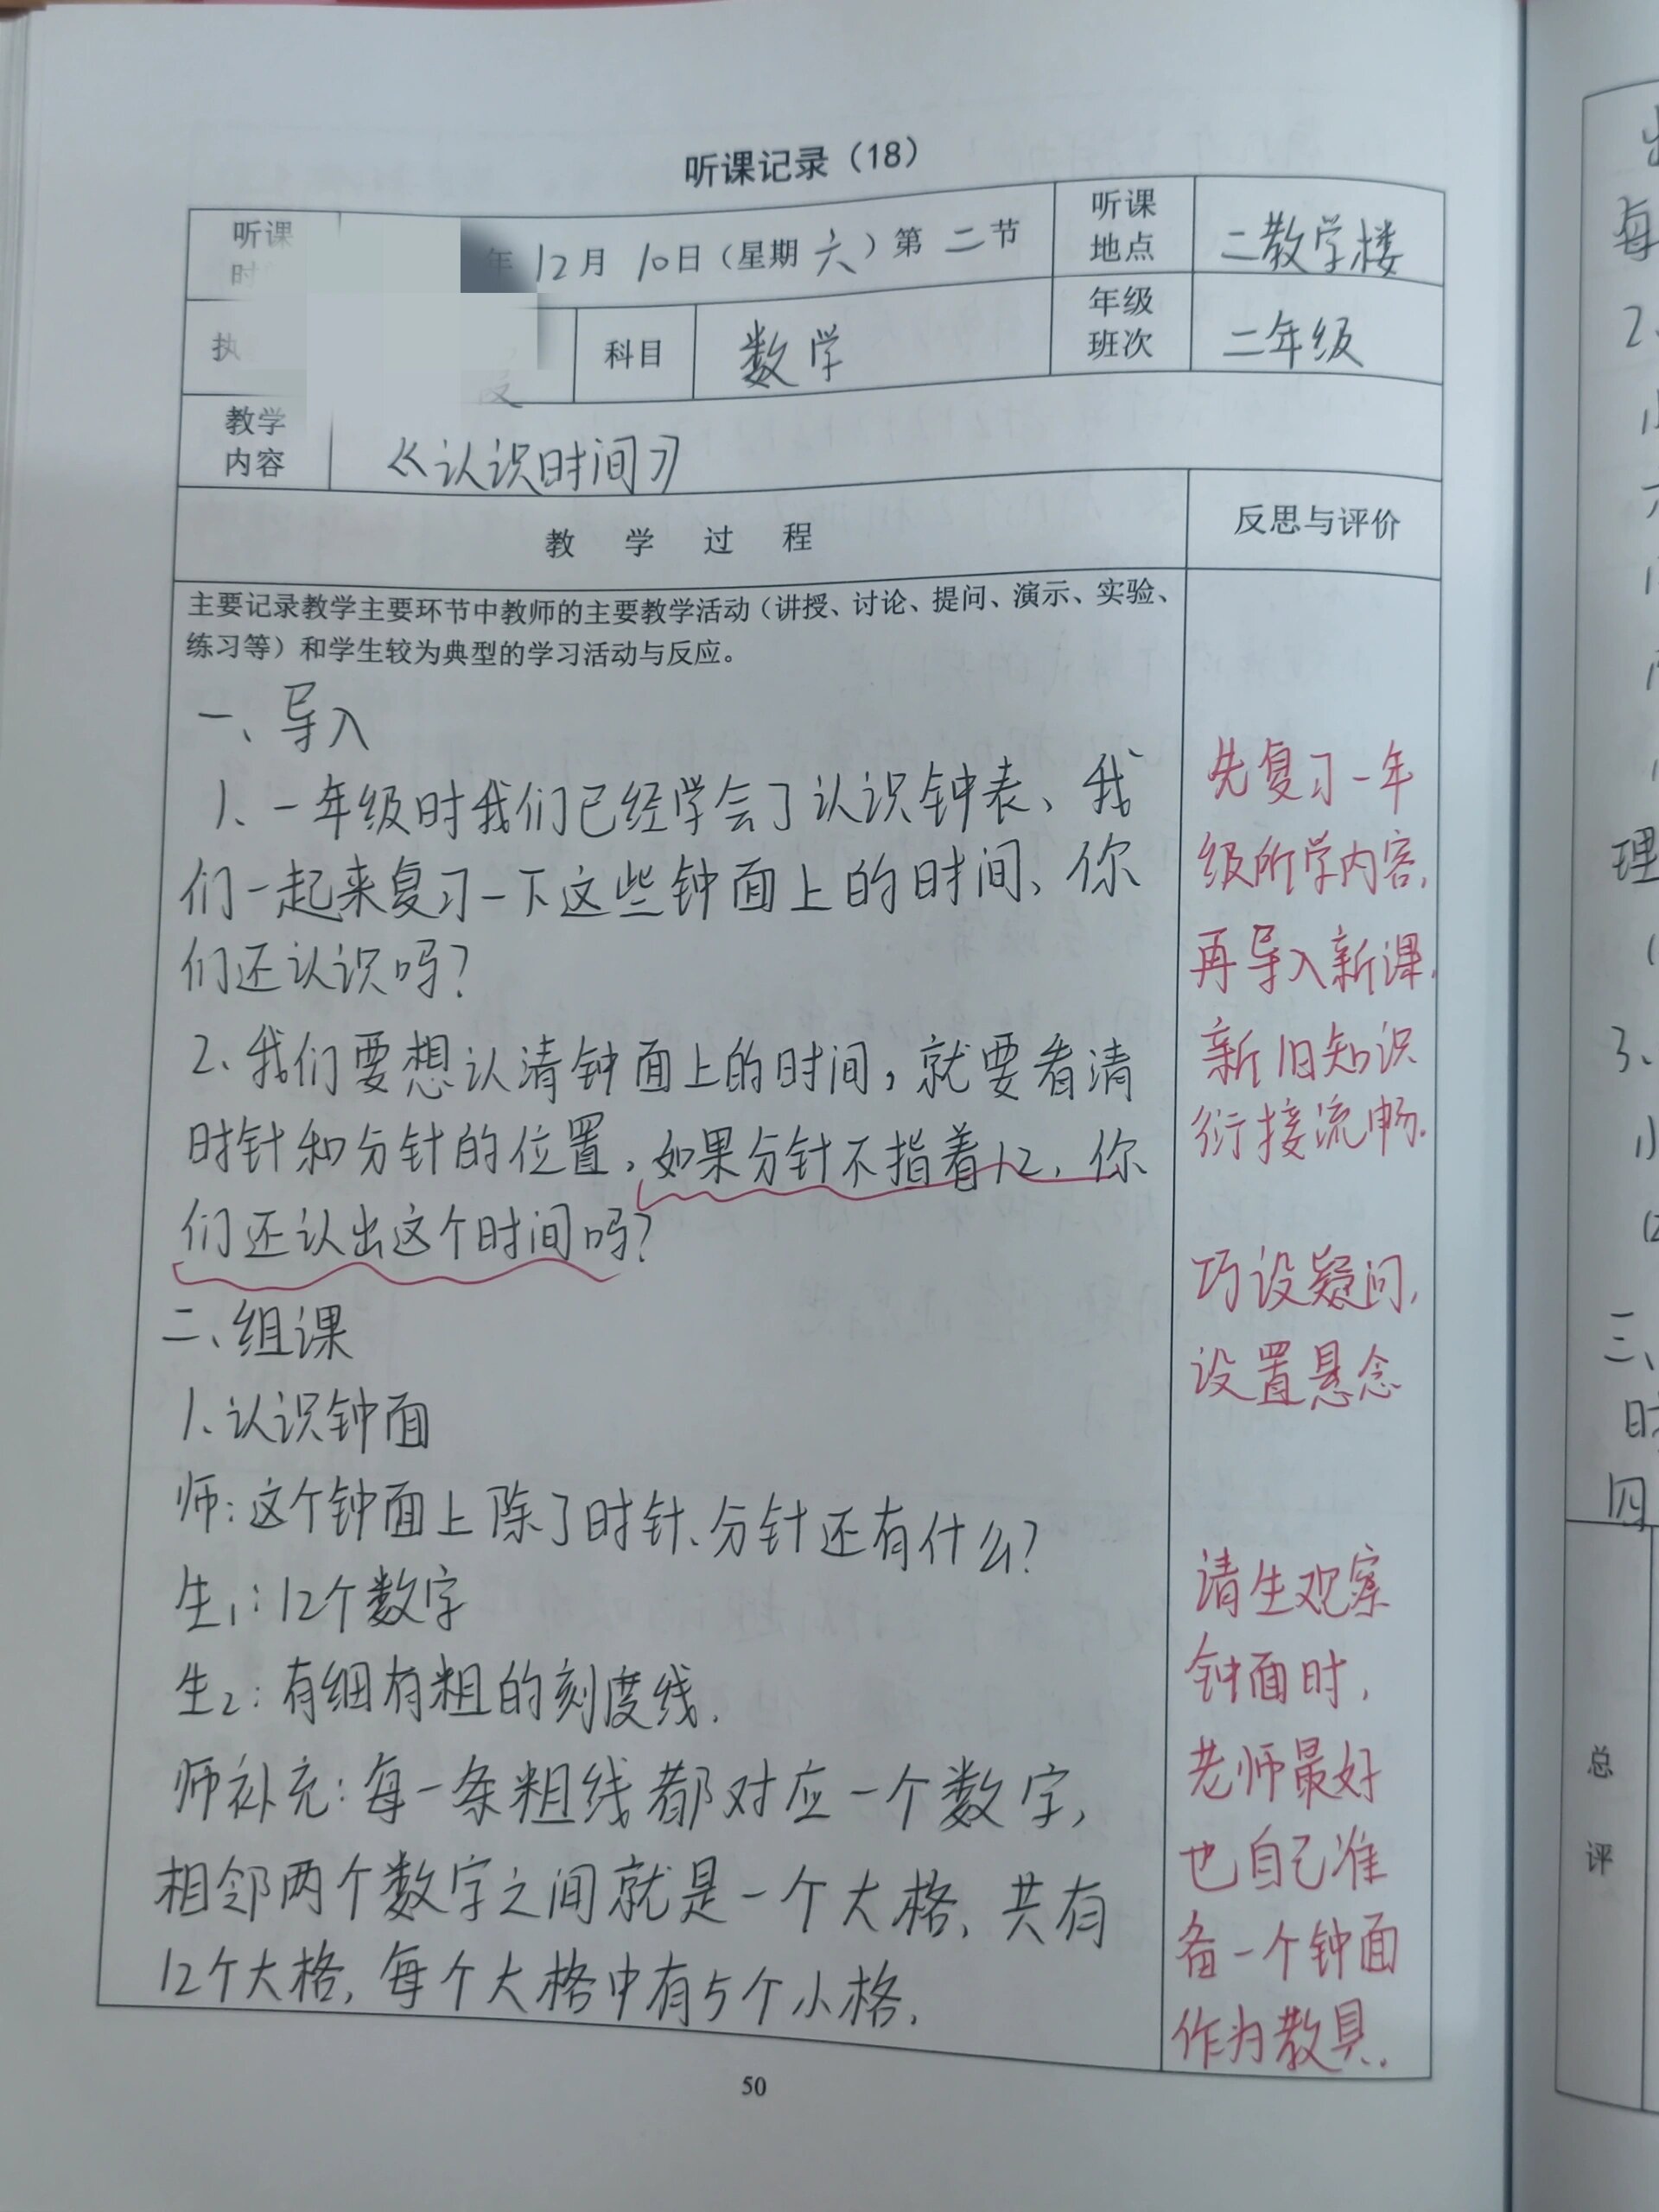 听课记录（18）
听课
年12月10日（星期六）第二节
听课
地点
二教学楼
科目
数学
年级
班次
二年级
教学
内容
《认识时间》
教 学 过 程
反思与评价
主要记录教学主要环节中教师的主要教学活动（讲授、讨论、提问、演示、实验、
练习等）和学生较为典型的学习活动与反应。
一、导入
1、一年级时我们已经学会了认识钟表、我
们一起来复习一下这些钟面上的时间、你
们还认识吗？
2、我们要想认清钟面上的时间，就要看清
时针和分针的位置，如果分针不指着12，你
们还认出这个时间吗？
二、组课
1、认识钟面
师：这个钟面上除了时针、分针还有什么？
生1：12个数字
生2：有细有粗的刻度线.
师补充：每一条粗线都对应一个数字，
相邻两个数字之间就是一个大格、共有
12个大格，每个大格中有5个小格.
先复习一年
级所学内容,
再导入新课.
新旧知识
衍接流畅.
巧设疑问,
设置悬念
请生观察
钟面时,
老师最好
也自己准
备一个钟面
作为教具.
50
每
理
三、
四
总
评